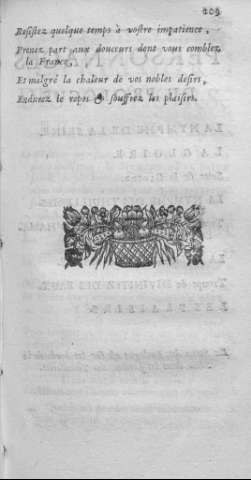 205
Resistez quelque temps à vostre impatience,
Prenez part aux douceurs dont vous comblez
la France,
Et malgré la chaleur de vos nobles desirs,
Endurez le repos & souffrez les plaisirs.